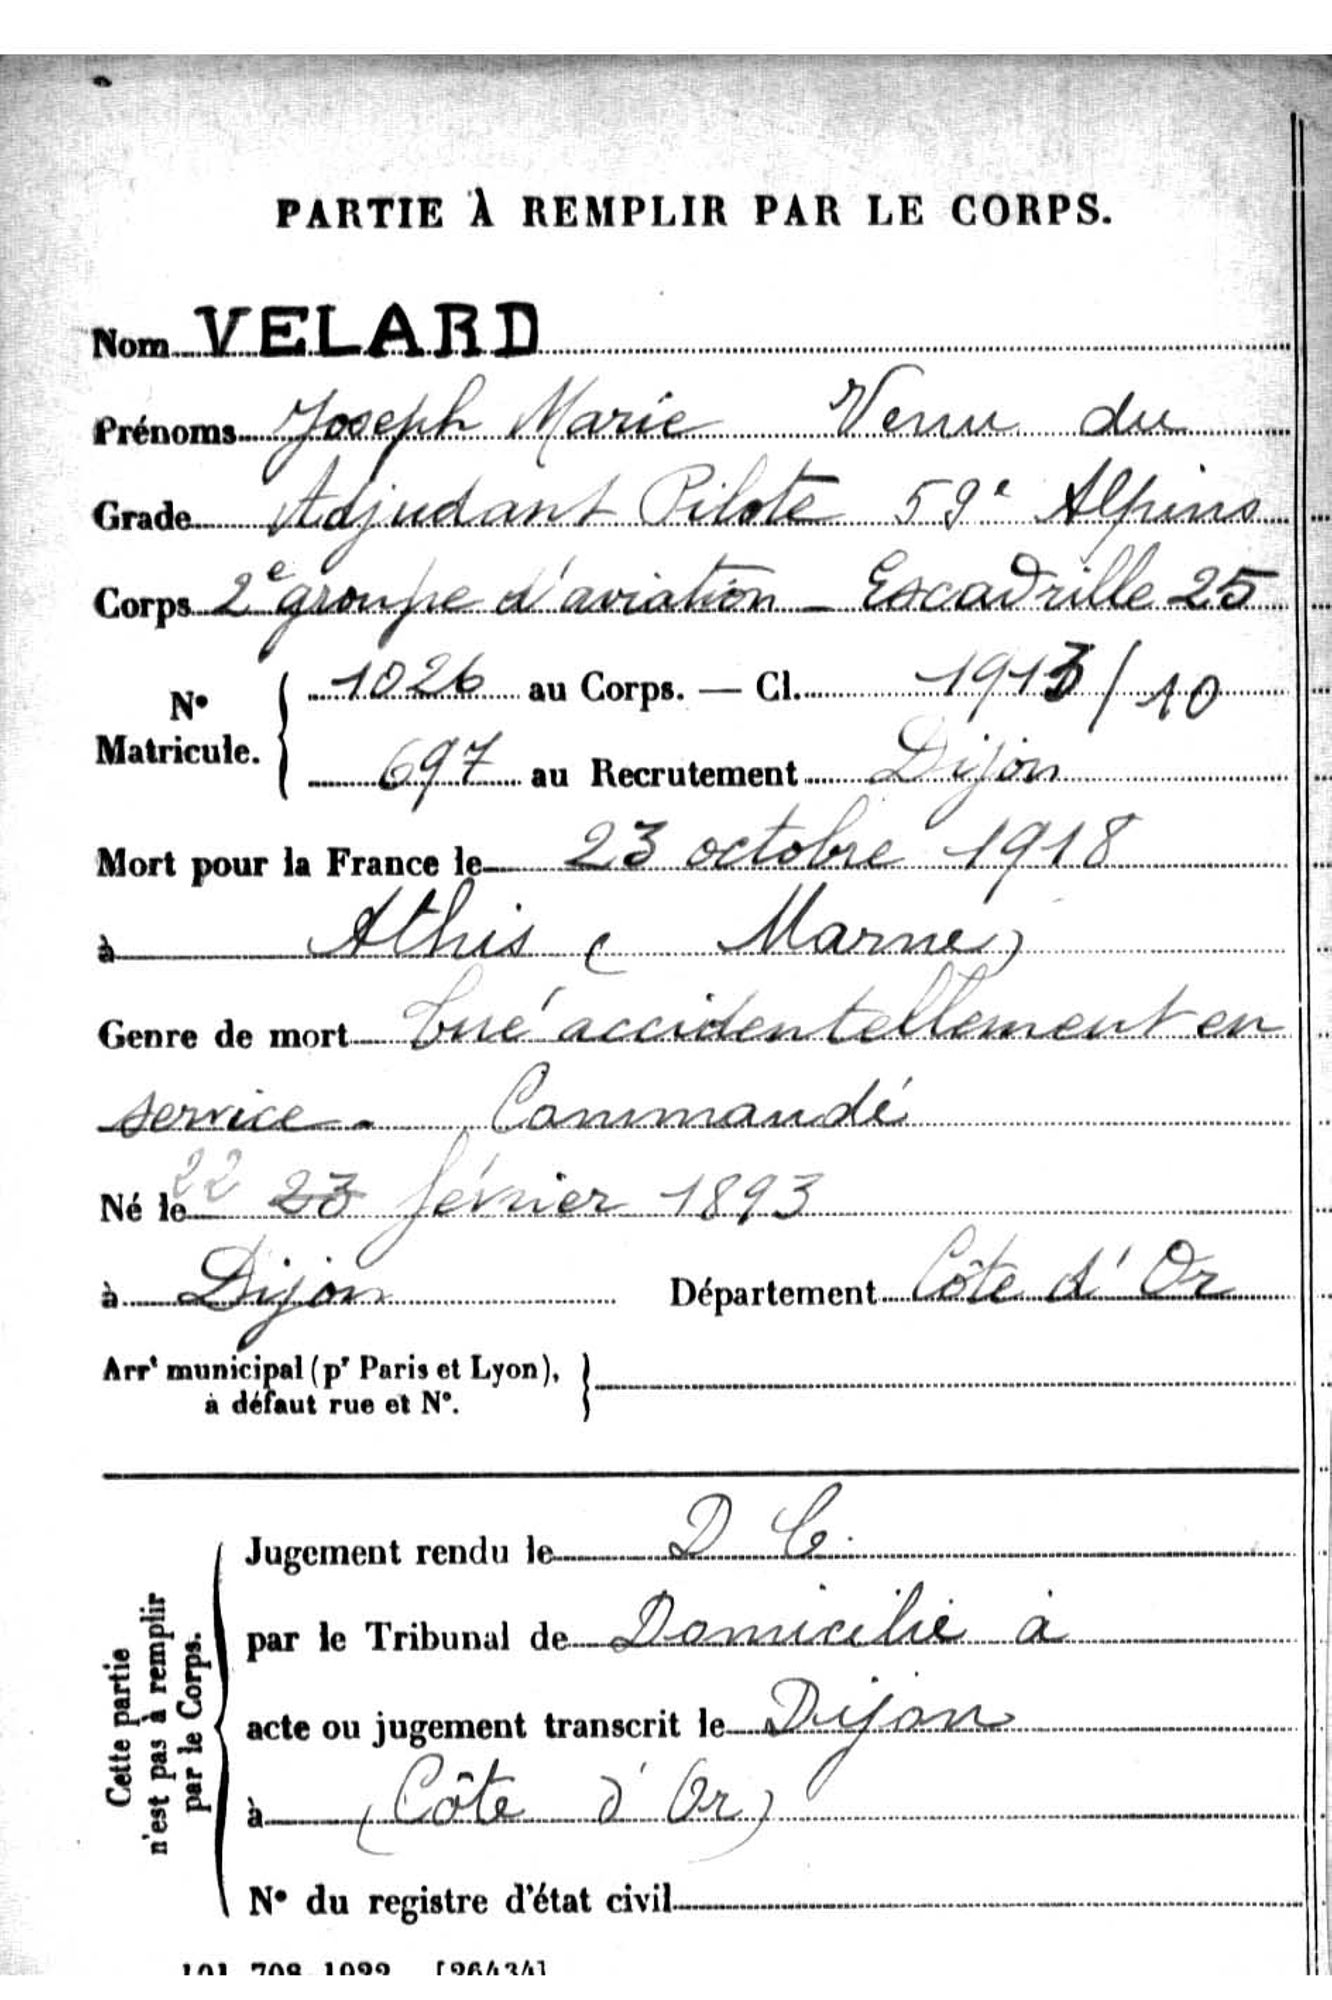 PARTIE À REMPLIR PAR LE CORPS.
Nom VELARD
Prénoms Joseph Marie Venu du
Grade Adjudant Pilote 59e Alpins
Corps 2e groupe d'aviation - Escadrille 25
No Matricule. { 1026 au Corps. — Cl. 1913/10
697 au Recrutement Dijon
Mort pour la France le 23 octobre 1918
à Athis (Marne)
Genre de mort tué accidentellement en
service - Commandé
Né le 22 23 février 1893
à Dijon Département Côte d'Or
Arrt municipal (pr Paris et Lyon), }
à défaut rue et No.
Cette partie
n'est pas à remplir
par le Corps.
Jugement rendu le D C.
par le Tribunal de Domicilié à
acte ou jugement transcrit le Dijon
à (Côte d'Or)
No du registre d'état civil
101.708.1922. [26434]